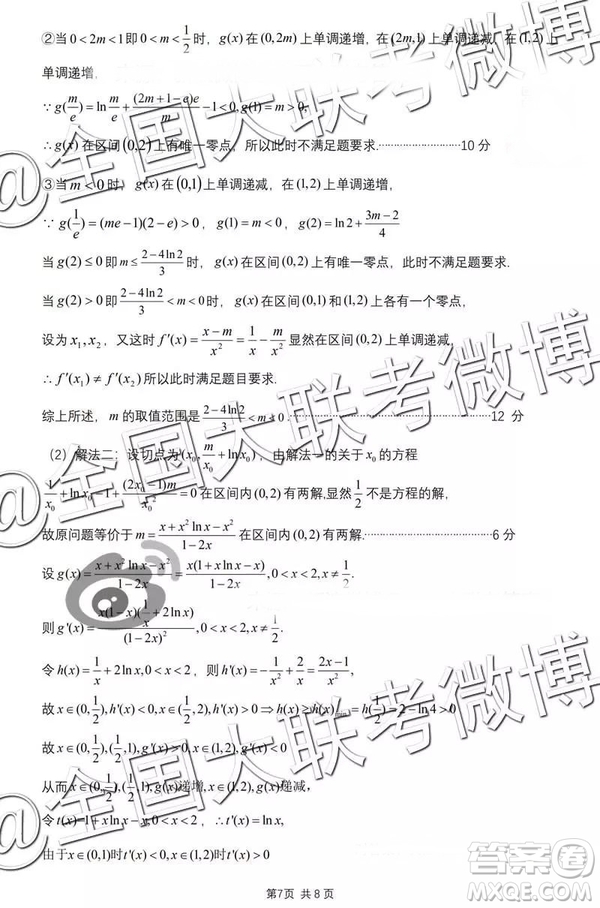 ②当 0<2m<1 即 0<m<1/2 时，g(x) 在 (0,2m) 上单调递增，在 (2m,1) 上单调递减，在 (1,2) 上
单调递增，
∵ g(m/e)=ln m/e+(2m+1-e)e/m-1<0, g(1)=m>0,
∴ g(x) 在区间 (0,2) 上有唯一零点，所以此时不满足题要求.……………………10 分
③当 m<0 时，g(x) 在 (0,1) 上单调递减，在 (1,2) 上单调递增，
∵ g(1/e)=(me-1)(2-e)>0，g(1)=m<0，g(2)=ln2+(3m-2)/4
当 g(2)≤0 即 m≤(2-4ln2)/3 时，g(x) 在区间 (0,2) 上有唯一零点，此时不满足题要求.
当 g(2)>0 即 (2-4ln2)/3<m<0 时，g(x) 在区间 (0,1) 和 (1,2) 上各有一个零点，
设为 x₁,x₂，又这时 f'(x)=(x-m)/x²=1/x-m/x² 显然在区间 (0,2) 上单调递减，
∴ f'(x₁)≠f'(x₂) 所以此时满足题目要求.
综上所述，m 的取值范围是 (2-4ln2)/3<m<0.……………………12 分
（2）解法二：设切点为 (x₀, m/x₀+lnx₀)，由解法一的关于 x₀ 的方程
1/x₀+lnx₀-1+(2x₀-1)m/x₀²=0 在区间 (0,2) 有两解,显然 1/2 不是方程的解，
故原问题等价于 m=(x+x²lnx-x²)/(1-2x) 在区间内 (0,2) 有两解.……………………6 分
设 g(x)=(x+x²lnx-x²)/(1-2x)=x(1+xlnx-x)/(1-2x),0<x<2,x≠1/2.
则 g'(x)=x(1-x)(1/x+2lnx)/(1-2x)²,0<x<2,x≠1/2.
令 h(x)=1/x+2lnx,0<x<2，则 h'(x)=-1/x²+2/x=(2x-1)/x²,
故 x∈(0,1/2),h'(x)<0,x∈(1/2,2),h'(x)>0⇒h(x)≥h(x)min=h(1/2)=2-ln4>0
故 x∈(0,1/2),(1/2,1),g'(x)>0,x∈(1,2),g'(x)<0
从而 x∈(0,1/2),(1/2,1),g(x)递增,x∈(1,2),g(x)递减，
令 t(x)=1+xlnx-x,0<x<2，∴t'(x)=lnx,
由于 x∈(0,1)时t'(x)<0,x∈(1,2)时t'(x)>0
第7页 共8页
@全国大联考微博
@全国大联考微博
@全国大联考微博
答案卷
MXQE.COM